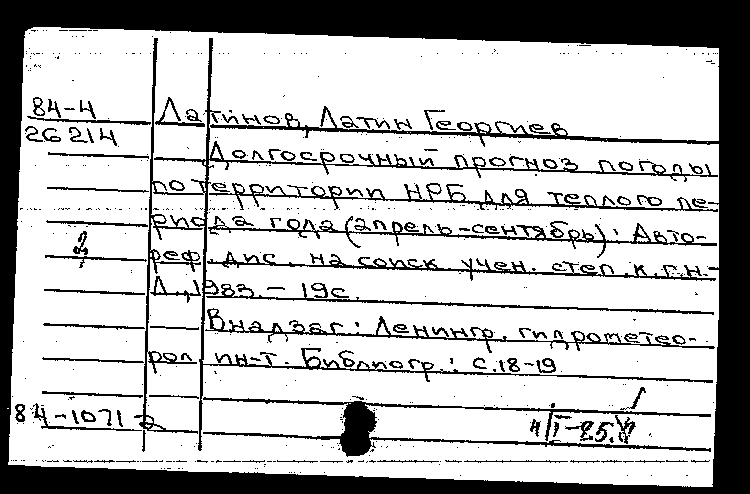 84-4 Латинов, Латин Георгиев
26214
Долгосрочный прогноз погоды
по территории НРБ для теплого пе-
риода года (апрель-сентябрь): Авто-
реф. дис. на соиск учен. степ. к.г.н.-
Л., 1983. - 19с.
В надзаг: Ленингр. гидрометео-
рол. ин-т. Библиогр.: с.18-19
84-1071